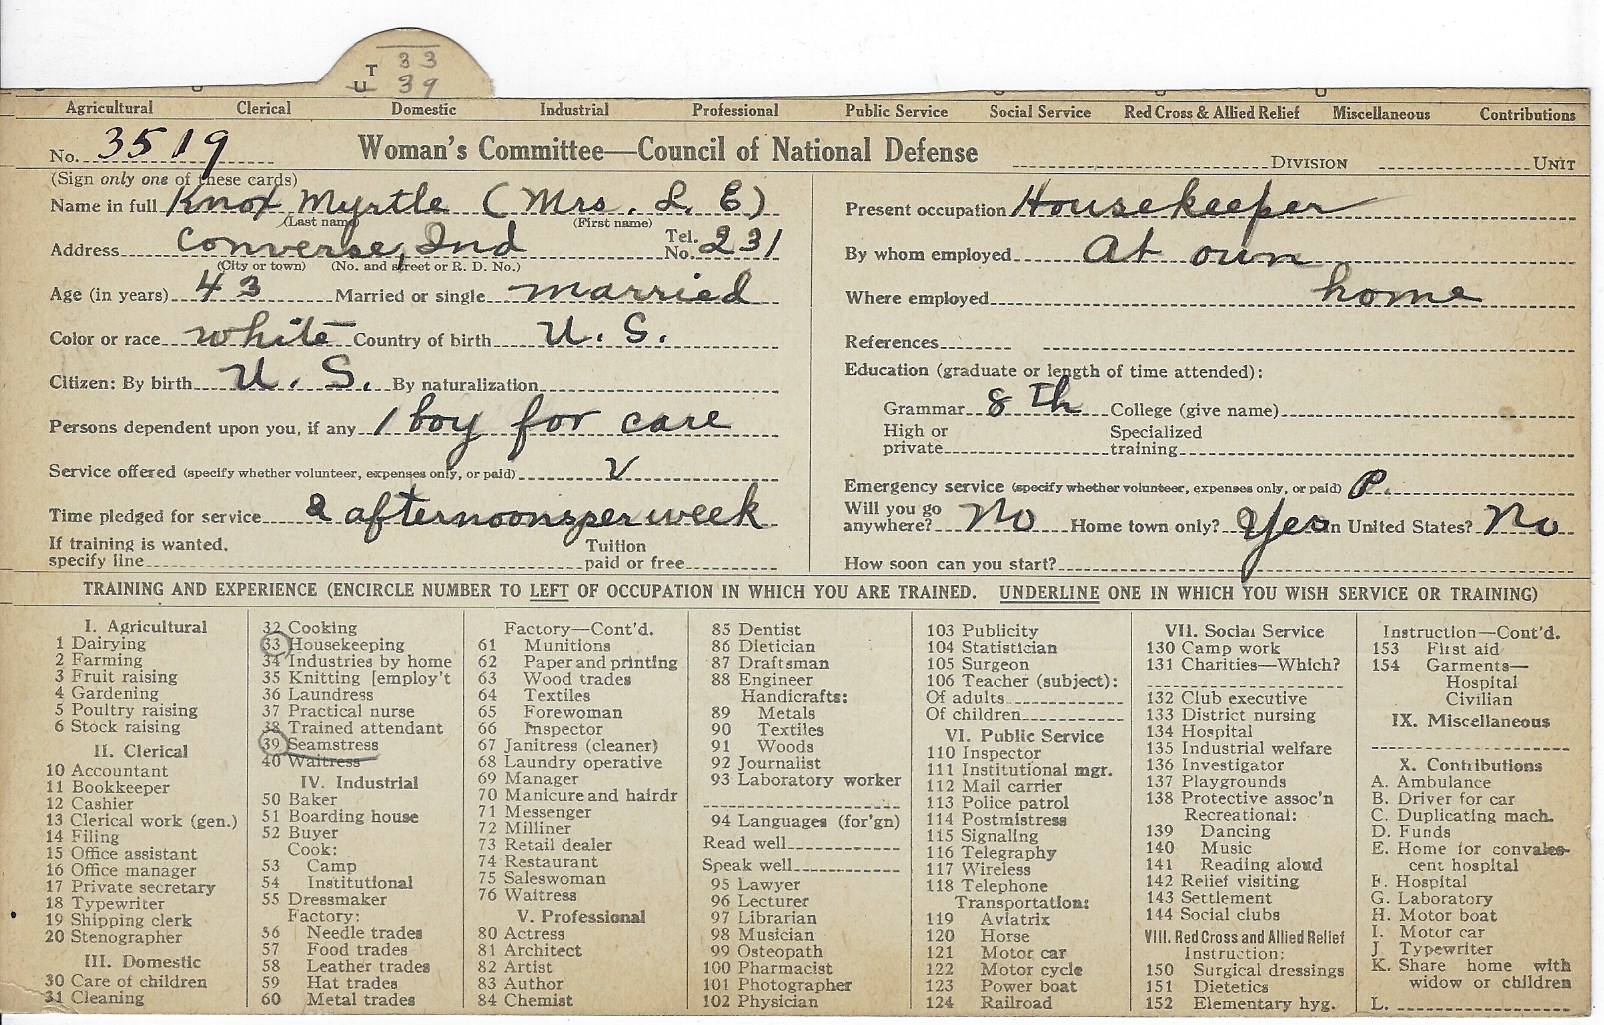 T 33
U 39
Agricultural Clerical Domestic Industrial Professional Public Service Social Service Red Cross & Allied Relief Miscellaneous Contributions
No. 3519 Woman's Committee—Council of National Defense DIVISION UNIT
(Sign only one of these cards)
Name in full Knox Myrtle (Mrs. L. E)
(Last name) (First name)
Address Converse, Ind Tel. No. 231
(City or town) (No. and street or R. D. No.)
Age (in years) 43 Married or single married
Color or race white Country of birth U. S.
Citizen: By birth U. S. By naturalization
Persons dependent upon you, if any 1 boy for care
Service offered (specify whether volunteer, expenses only, or paid) V
Time pledged for service 2 afternoons per week
If training is wanted, specify line Tuition paid or free
Present occupation Housekeeper
By whom employed At own
Where employed home
References
Education (graduate or length of time attended):
Grammar 8th College (give name)
High or private Specialized training
Emergency service (specify whether volunteer, expenses only, or paid) P.
Will you go anywhere? No Home town only? Yes In United States? No
How soon can you start?
TRAINING AND EXPERIENCE (ENCIRCLE NUMBER TO LEFT OF OCCUPATION IN WHICH YOU ARE TRAINED. UNDERLINE ONE IN WHICH YOU WISH SERVICE OR TRAINING)
I. Agricultural
1 Dairying
2 Farming
3 Fruit raising
4 Gardening
5 Poultry raising
6 Stock raising
II. Clerical
10 Accountant
11 Bookkeeper
12 Cashier
13 Clerical work (gen.)
14 Filing
15 Office assistant
16 Office manager
17 Private secretary
18 Typewriter
19 Shipping clerk
20 Stenographer
III. Domestic
30 Care of children
31 Cleaning
32 Cooking
33 Housekeeping
34 Industries by home
35 Knitting [employ't
36 Laundress
37 Practical nurse
38 Trained attendant
39 Seamstress
40 Waitress
IV. Industrial
50 Baker
51 Boarding house
52 Buyer
Cook:
53 Camp
54 Institutional
55 Dressmaker
Factory:
56 Needle trades
57 Food trades
58 Leather trades
59 Hat trades
60 Metal trades
Factory—Cont'd.
61 Munitions
62 Paper and printing
63 Wood trades
64 Textiles
65 Forewoman
66 Inspector
67 Janitress (cleaner)
68 Laundry operative
69 Manager
70 Manicure and hairdr
71 Messenger
72 Milliner
73 Retail dealer
74 Restaurant
75 Saleswoman
76 Waitress
V. Professional
80 Actress
81 Architect
82 Artist
83 Author
84 Chemist
85 Dentist
86 Dietician
87 Draftsman
88 Engineer
Handicrafts:
89 Metals
90 Textiles
91 Woods
92 Journalist
93 Laboratory worker
94 Languages (for'gn)
Read well
Speak well
95 Lawyer
96 Lecturer
97 Librarian
98 Musician
99 Osteopath
100 Pharmacist
101 Photographer
102 Physician
103 Publicity
104 Statistician
105 Surgeon
106 Teacher (subject):
Of adults
Of children
VI. Public Service
110 Inspector
111 Institutional mgr.
112 Mail carrier
113 Police patrol
114 Postmistress
115 Signaling
116 Telegraphy
117 Wireless
118 Telephone
Transportation:
119 Aviatrix
120 Horse
121 Motor car
122 Motor cycle
123 Power boat
124 Railroad
VII. Social Service
130 Camp work
131 Charities—Which?
132 Club executive
133 District nursing
134 Hospital
135 Industrial welfare
136 Investigator
137 Playgrounds
138 Protective assoc'n
Recreational:
139 Dancing
140 Music
141 Reading aloud
142 Relief visiting
143 Settlement
144 Social clubs
VIII. Red Cross and Allied Relief
Instruction:
150 Surgical dressings
151 Dietetics
152 Elementary hyg.
Instruction—Cont'd.
153 First aid
154 Garments—
Hospital
Civilian
IX. Miscellaneous
X. Contributions
A. Ambulance
B. Driver for car
C. Duplicating mach.
D. Funds
E. Home for convales-
cent hospital
F. Hospital
G. Laboratory
H. Motor boat
I. Motor car
J. Typewriter
K. Share home with
widow or children
L.